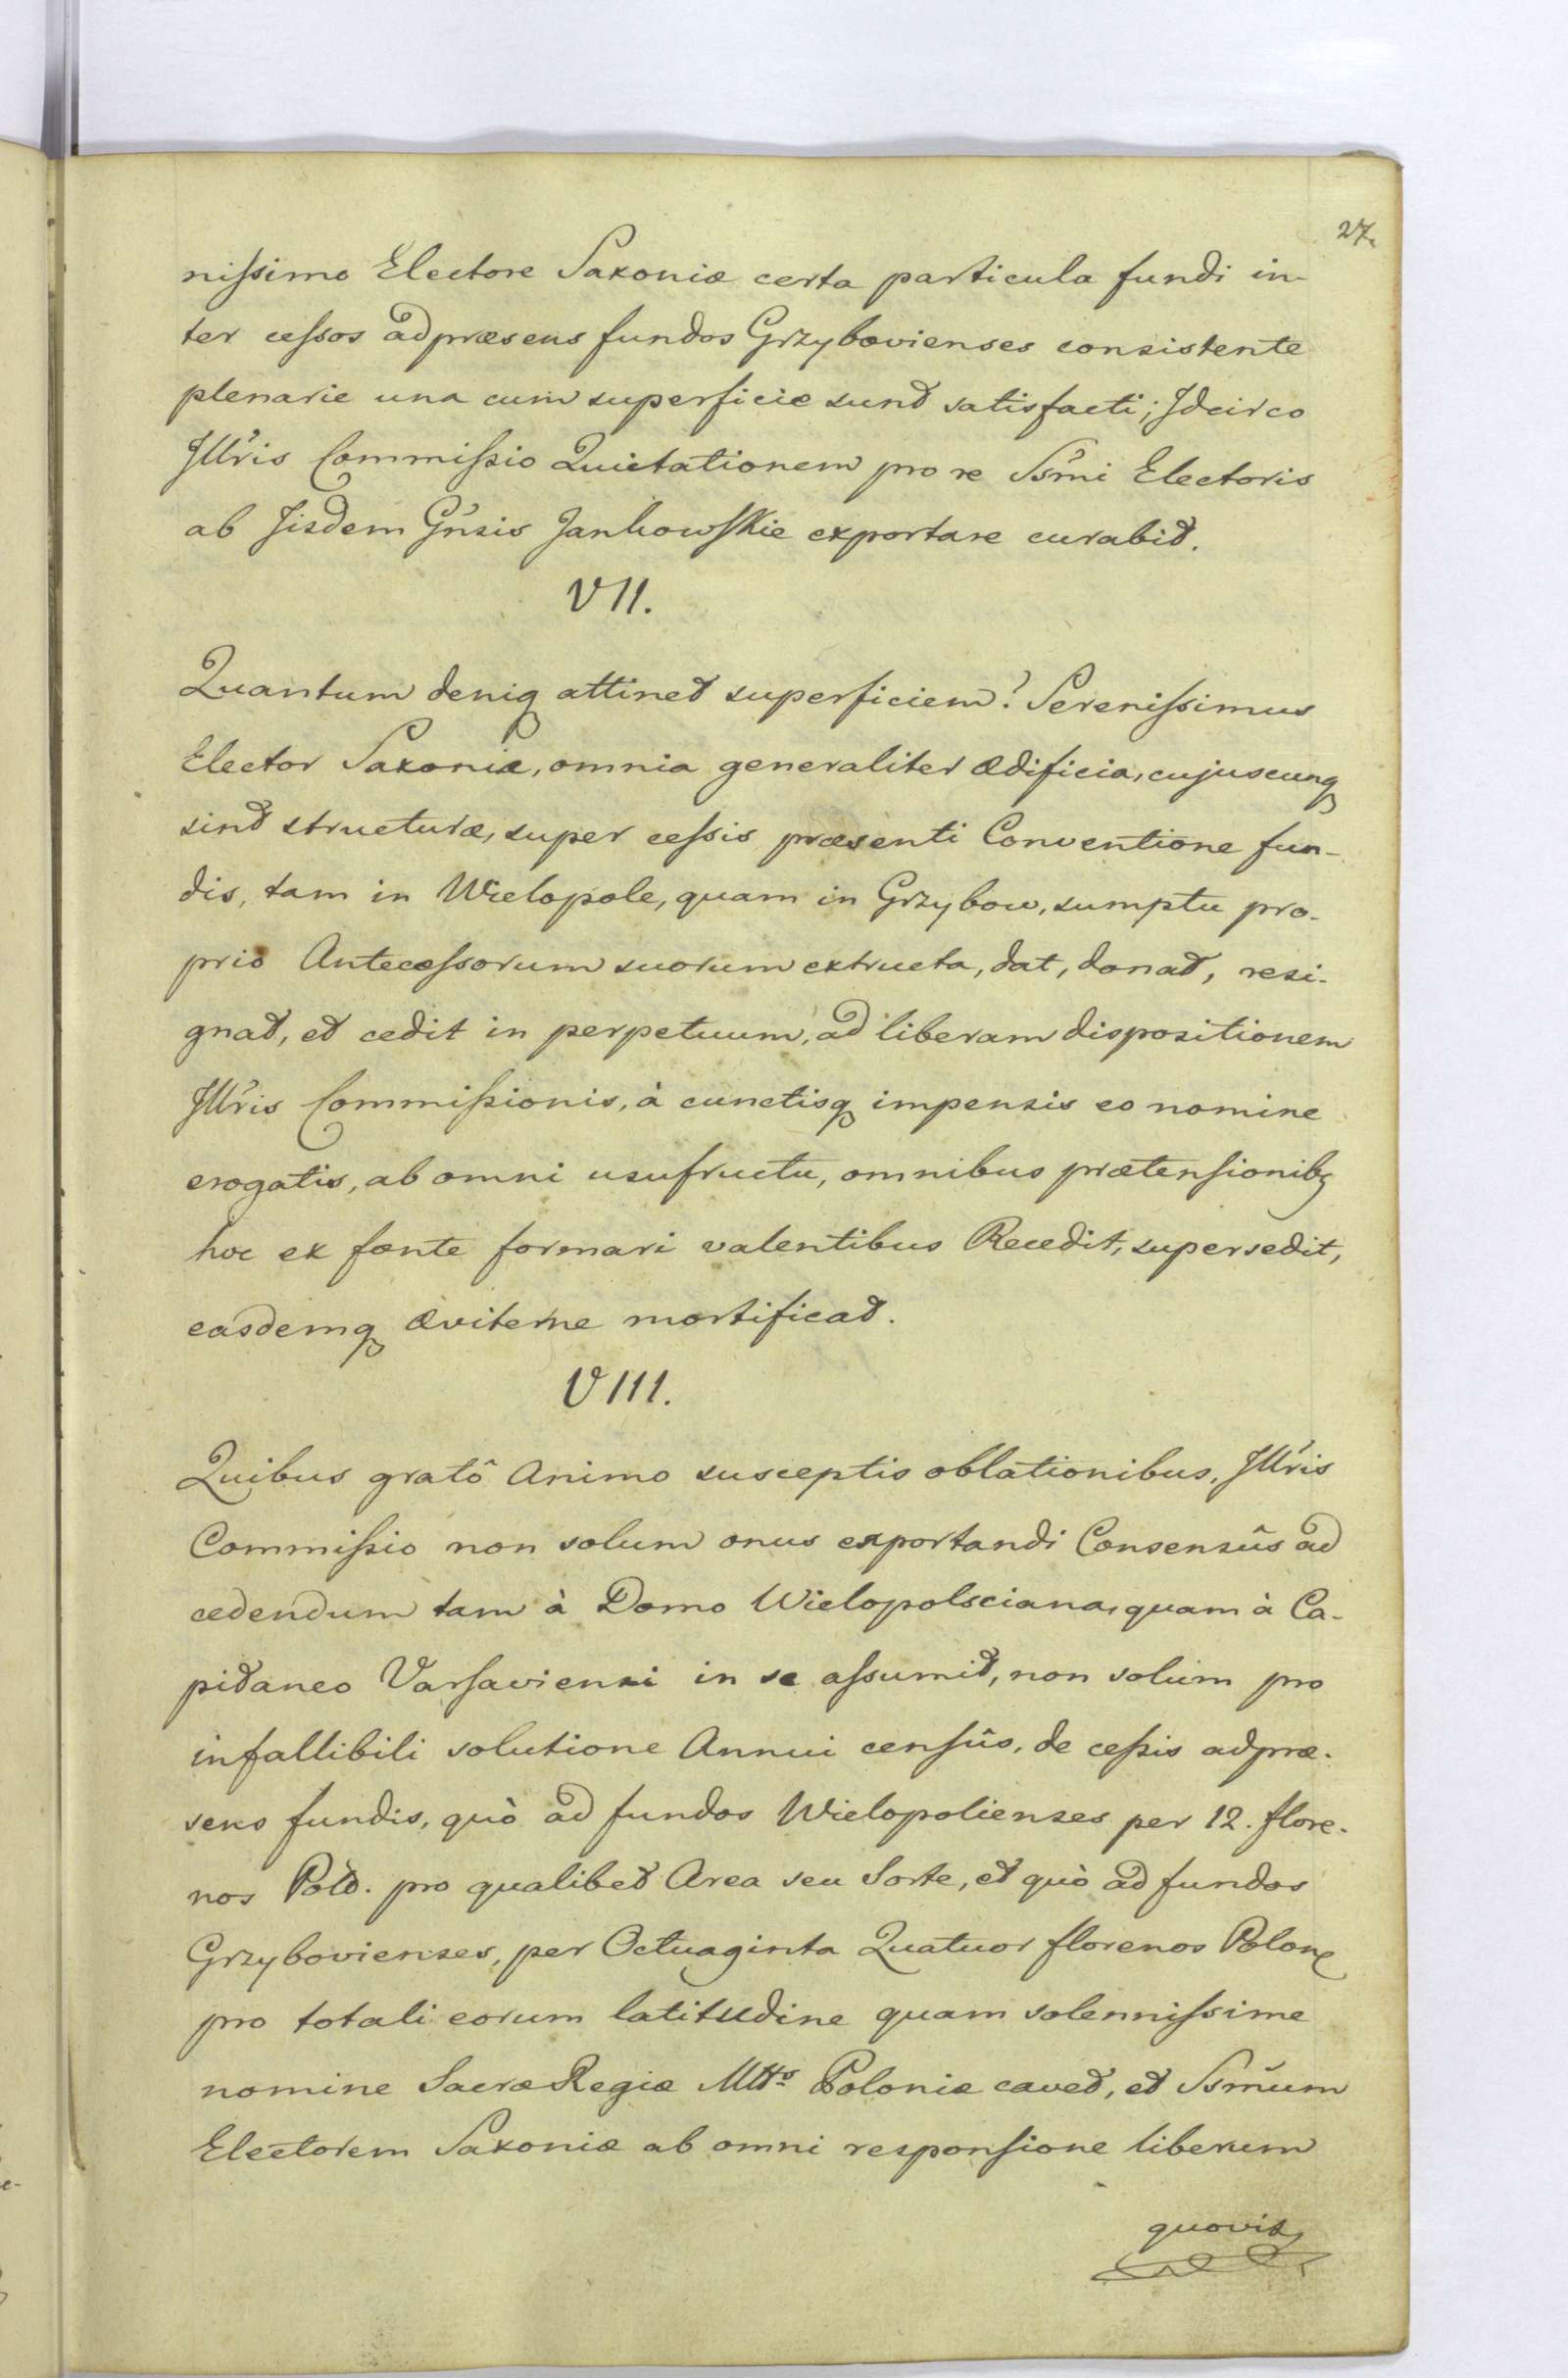 27.
nissimo Electore Saxoniæ certa particula fundi in-
ter cessos adpræsens fundos Grzybovienses consistente
plenarie una cum superficie sunt satisfacti; Idcirco
Illr̃is Commissio Quietationem pro re Ss̃mi Electoris
ab Iisdem Gñsis Jankowskie exportare curabit.
VII.
Quantum deniq attinet superficiem? Serenissimus
Elector Saxoniæ, omnia generaliter ædificia, cujuscunq
sint structuræ, super cessis præsenti Conventione fun-
dis, tam in Wielopole, quam in Grzybow, sumptu pro-
prio Antecessorum suorum extructa, dat, donat, resi-
gnat, et cedit in perpetuum, ad liberam dispositionem
Illr̃is Commissionis, à cunctisq impensis eo nomine
erogatis, ab omni usufructu, omnibus prætensionibꝫ
hoc ex fonte formari valentibus Recedit, supersedit,
easdemq æviterne mortificat.
VIII.
Quibus gratô Animo susceptis oblationibus, Illr̃is
Commissio non solum onus exportandi Consensûs ad
cedendum tam à Domo Wielopolsciana, quam à Ca-
pitaneo Varsaviensi in se assumit, non solùm pro
infallibili solutione Annui censûs, de cessis adpræ-
sens fundis, quò ad fundos Wielopolienses per 12. flore-
nos Pold. pro qualibet Area seu Sorte, et quò ad fundos
Grzybovienses, per Octuaginta Quatuor florenos Polon
pro totali eorum latitudine quam solennissime
nomine Sacræ Regiæ Mtts Poloniæ cavet, et Ss̃mum
Electorem Saxoniæ ab omni responsione liberum
quovis